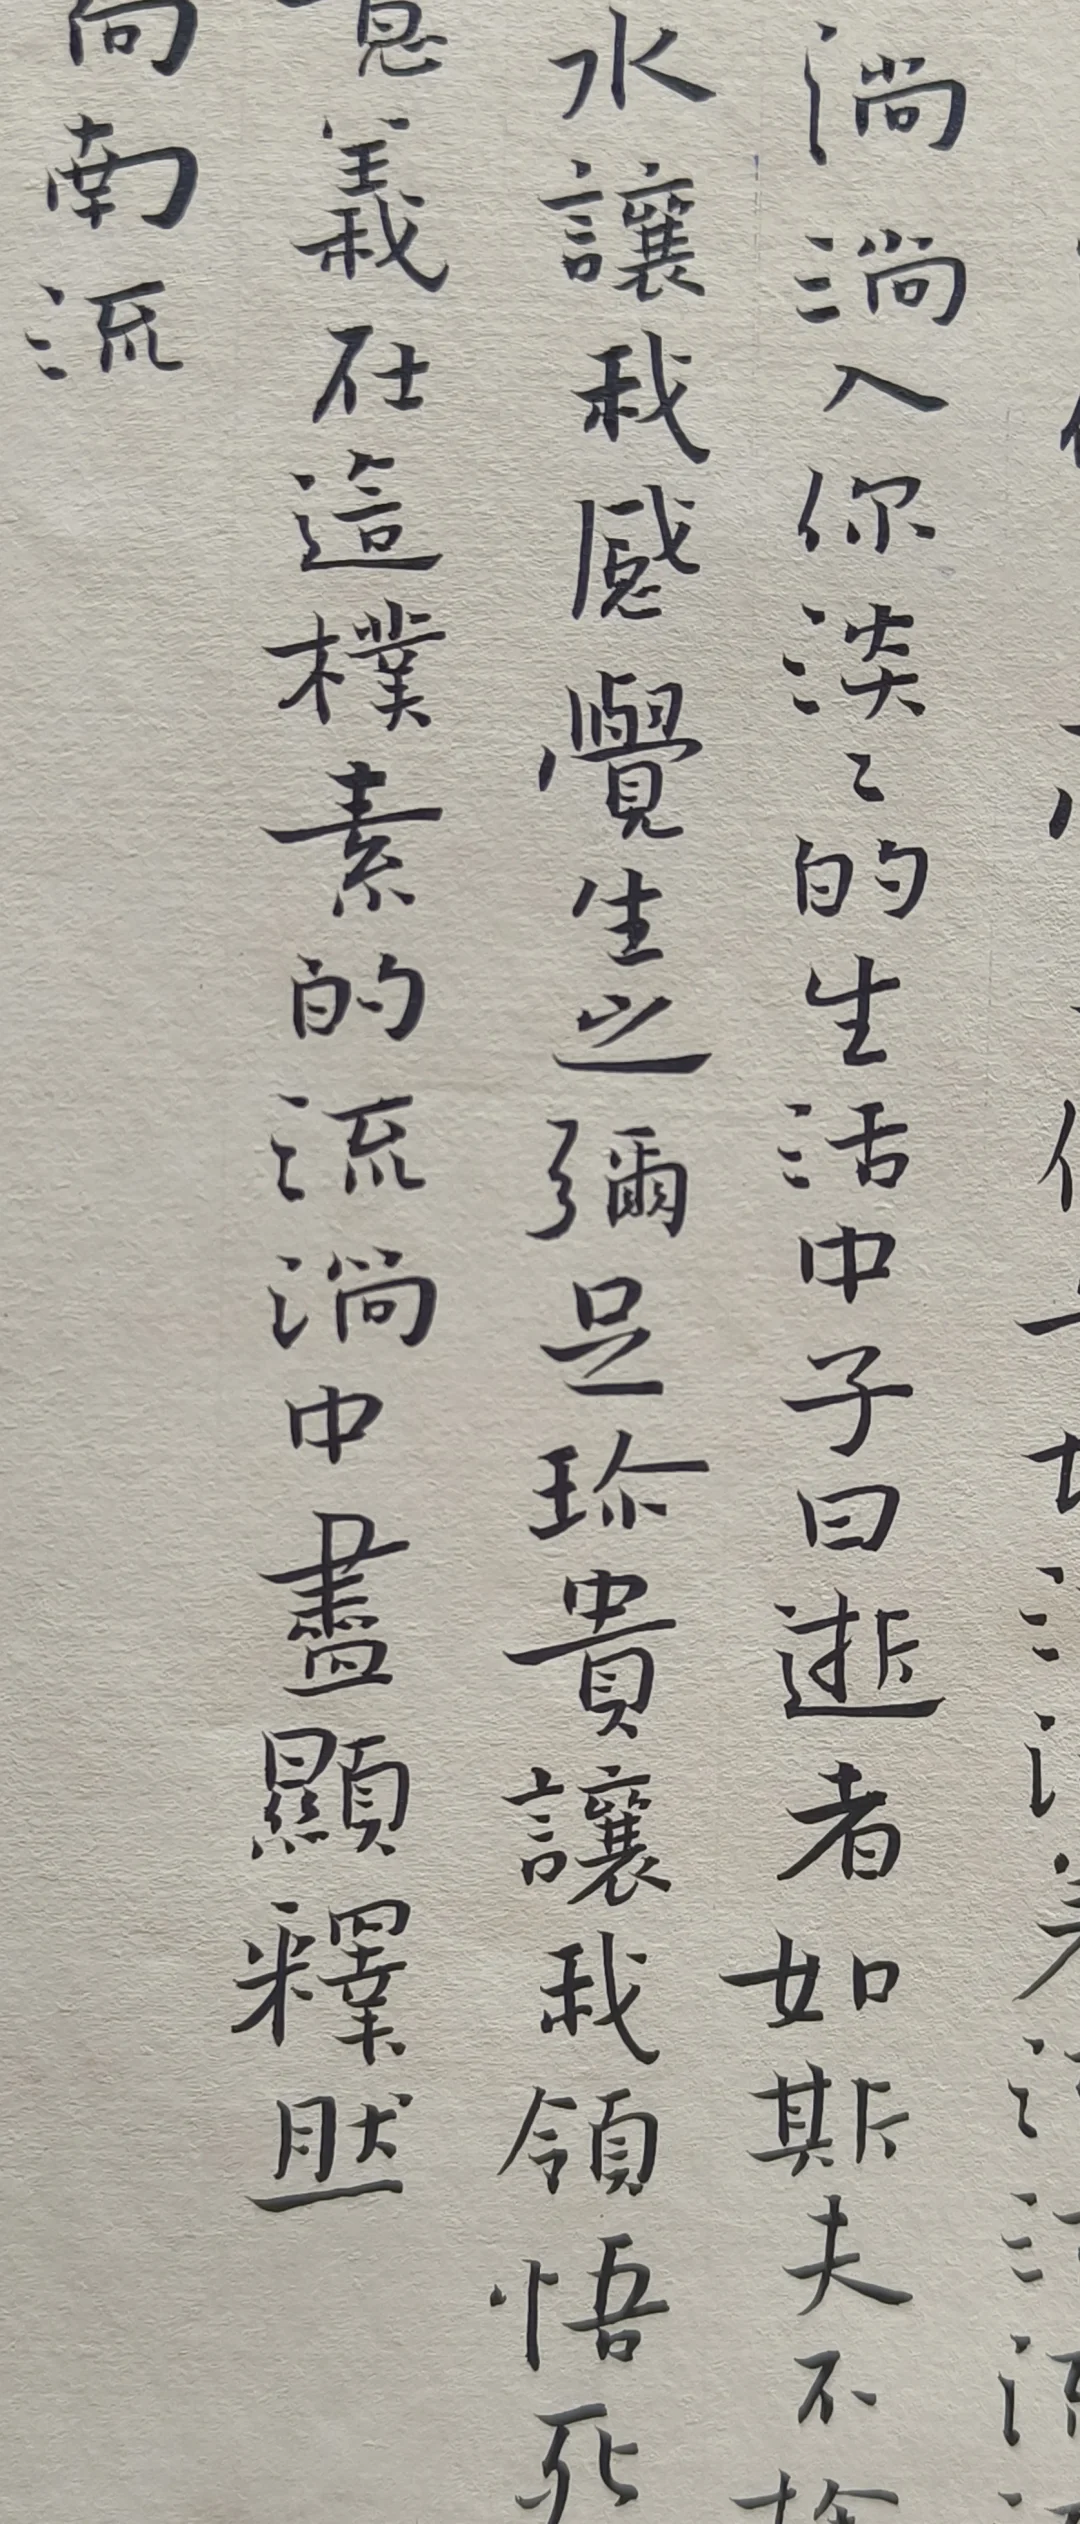 淌淌入你淡々的生活中子曰逝者如斯夫不捨
水讓我感覺生之彌足珍貴讓我領悟死
意義在這樸素的流淌中盡顯釋然
向南流